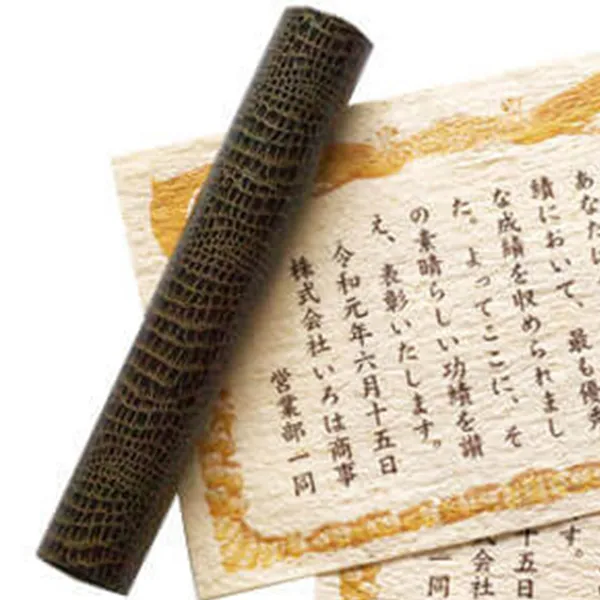 あなたは
績において、最も優秀
な成績を収められまし
た。よってここに、そ
の素晴らしい功績を讃
え、表彰いたします。
令和元年六月十五日
株式会社いろは商事
営業部一同
す。
十五日
会社
一同